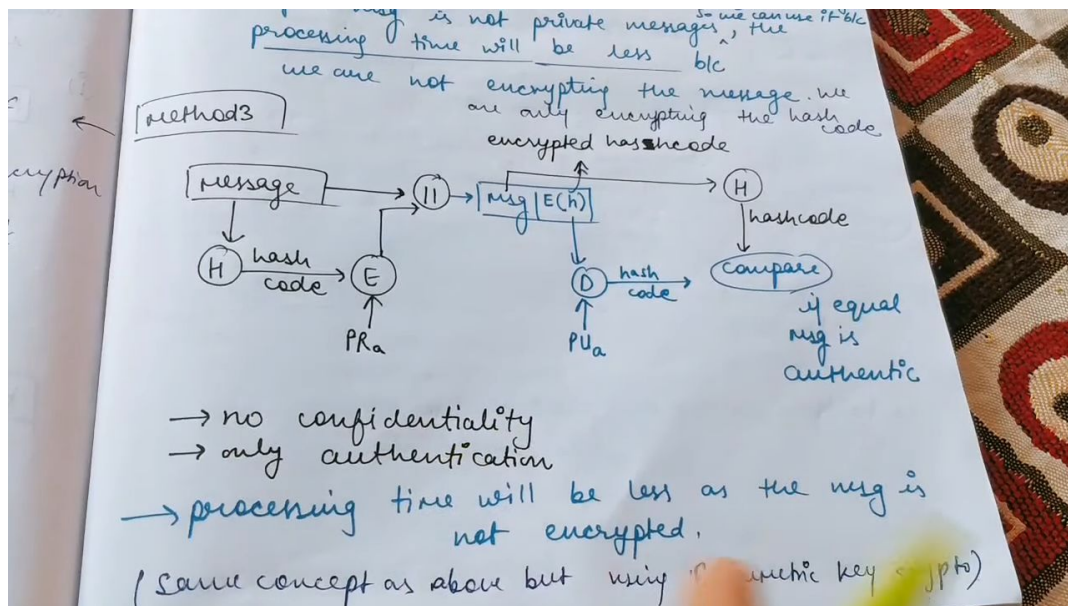 msg is not private messages, the so we can use it b/c
processing time will be less b/c
we are not encrypting the message. we
are only encrypting the hash code
method3
encrypted hashcode
message
||
msg E(h)
H
hashcode
H
hash code
E
D
hash code
compare
PRa
PUa
if equal
msg is
authentic
→ no confidentiality
→ only authentication
→ processing time will be less as the msg is
not encrypted.
(same concept as above but using key crypto)